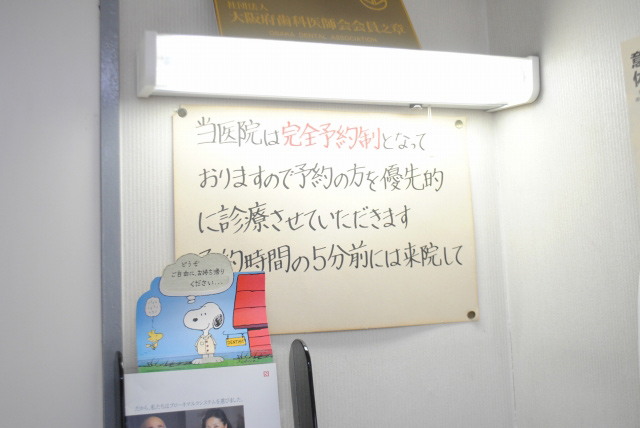 社団法人
大阪府歯科医師会会員之章
当医院は完全予約制となって
おりますので予約の方を優先的
に診療させていただきます
予約時間の5分前には来院して
どうぞ
ご自由にお持ち帰り
ください……
DENTIST